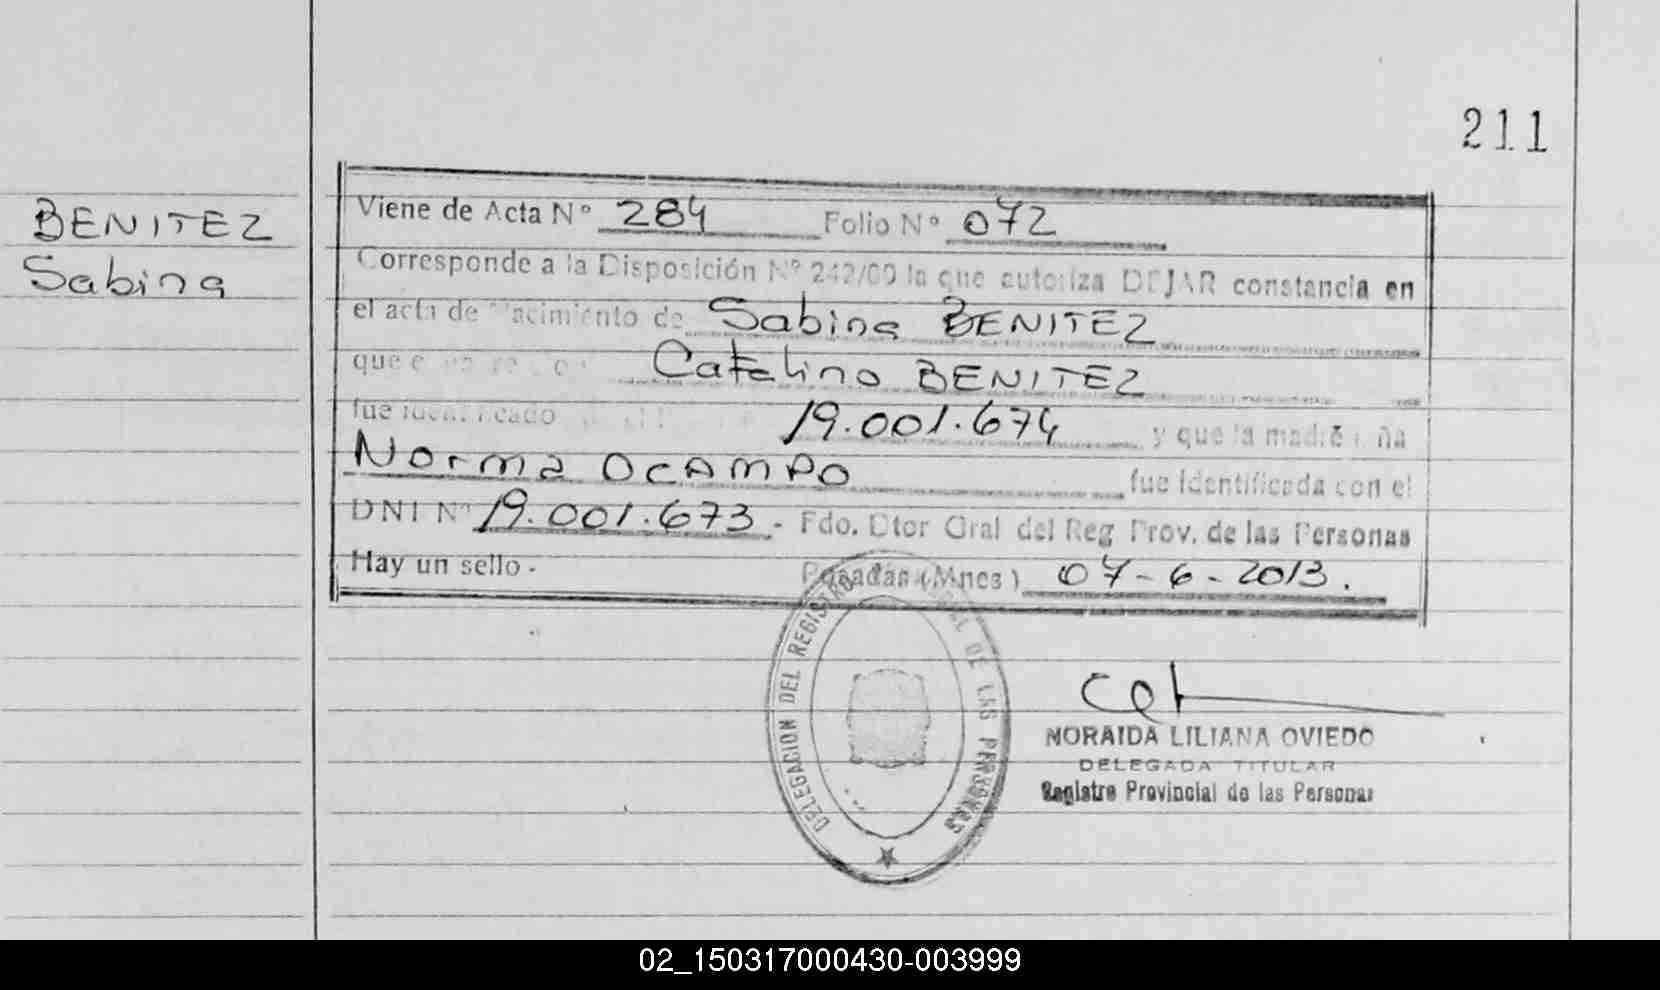 211
BENITEZ
Sabina
Viene de Acta N° 284 Folio N° 072
Corresponde a la Disposición N° 242/00 la que autoriza DEJAR constancia en
el acta de Nacimiento de Sabina BENITEZ
que Catalino BENITEZ
fue identificado 19.001.674 y que la madre
Norma OCAMPO fue identificada con el
DNI N° 19.001.673.- Fdo. Dtor Gral del Reg Prov. de las Personas
Hay un sello.- Posadas (Mnes) 07-6-2013.
DELEGACION DEL REGISTRO DE LAS PERSONAS
NORAIDA LILIANA OVIEDO
DELEGADA TITULAR
Registro Provincial de las Personas
02_150317000430-003999